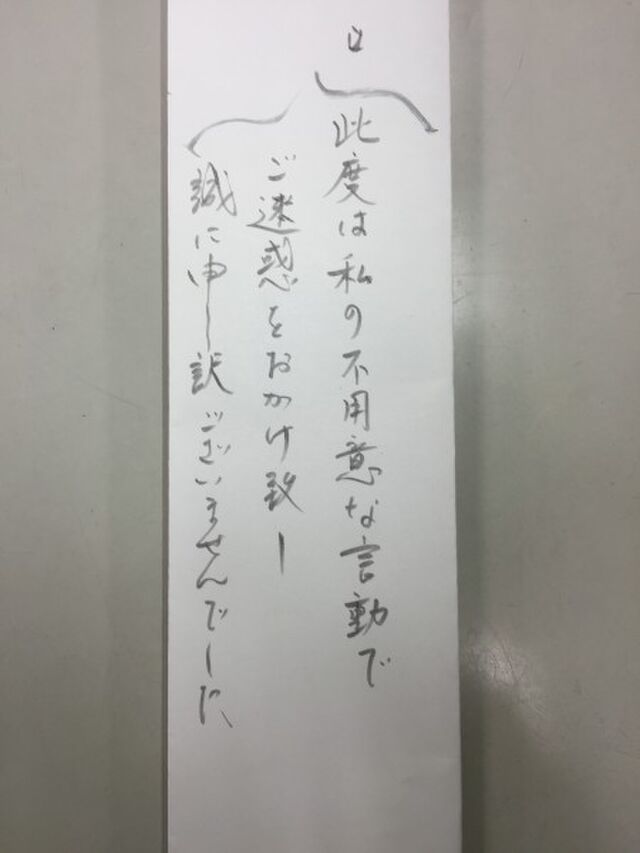 此度は私の不用意な言動で
ご迷惑をおかけ致し
誠に申し訳ございませんでした